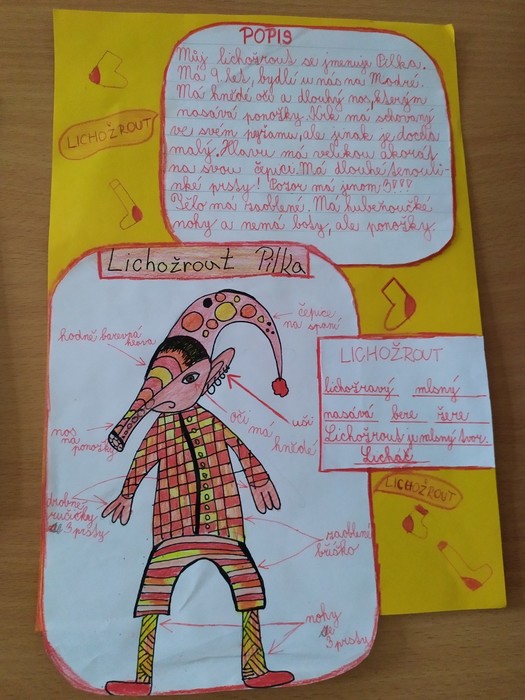 POPIS
Můj lichožrout se jmenuje Pilka.
Má 9 let, bydlí u nás na Modré.
Má hnědé oči a dlouhý nos, kterým
nasává ponožky. Krk má schovaný
ve svém pyžamu, ale jinak je docela
malý. Hlavu má velikou akorát
na svou čepici. Má dlouhé tenouli-
nké prsty! Pozor má jenom 3!!!
Tělo má zaoblené. Má hubeňoučké
nohy a nemá boty, ale ponožky.
LICHOŽROUT
Lichožrout Pilka
čepice
na spaní
hodně barevná
hlava
nos
na
ponožky
oči
má
hnědé
uši
drobné
ručičky
3 prsty
zaoblené
bříško
nohy
3 prsty
LICHOŽROUT
lichožravý mlsný
nasává bere žere
Lichožrout je mlsný tvor.
Licháč
LICHOŽROUT